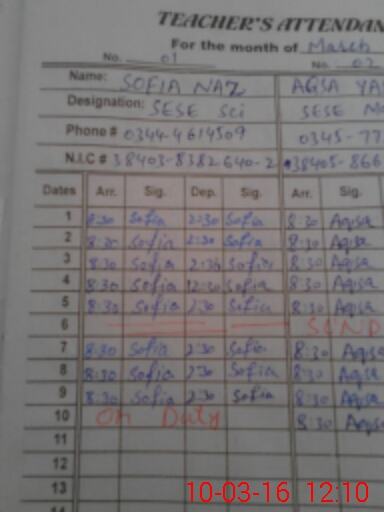 TEACHER'S ATTENDAN
For the month of March
No. 01 No. 02
Name: SOFIA NAZ AQSA YA
Designation: SESE Sci SESE M
Phone # 0344-4614509 0345-77
N.I.C # 38403-8382640-2 38405-866
Dates Arr. Sig. Dep. Sig. Arr. Sig.
1 8:30 Sofia 2:30 Sofia 8:30 Aqsa
2 8:30 Sofia 2:30 Sofia 8:30 Aqsa
3 8:30 Sofia 2:30 Sofia 8:30 Aqsa
4 8:30 Sofia 12:30 Sofia 8:30 Aqsa
5 8:30 Sofia 2:30 Sofia 8:30 Aqsa
6 SUND
7 8:30 Sofia 2:30 Sofia 8:30 Aqsa
8 8:30 Sofia 2:30 Sofia 8:30 Aqsa
9 8:30 Sofia 2:30 Sofia 8:30 Aqsa
10 On Duty 8:30 Aqsa
11
12
13
10-03-16 12:10